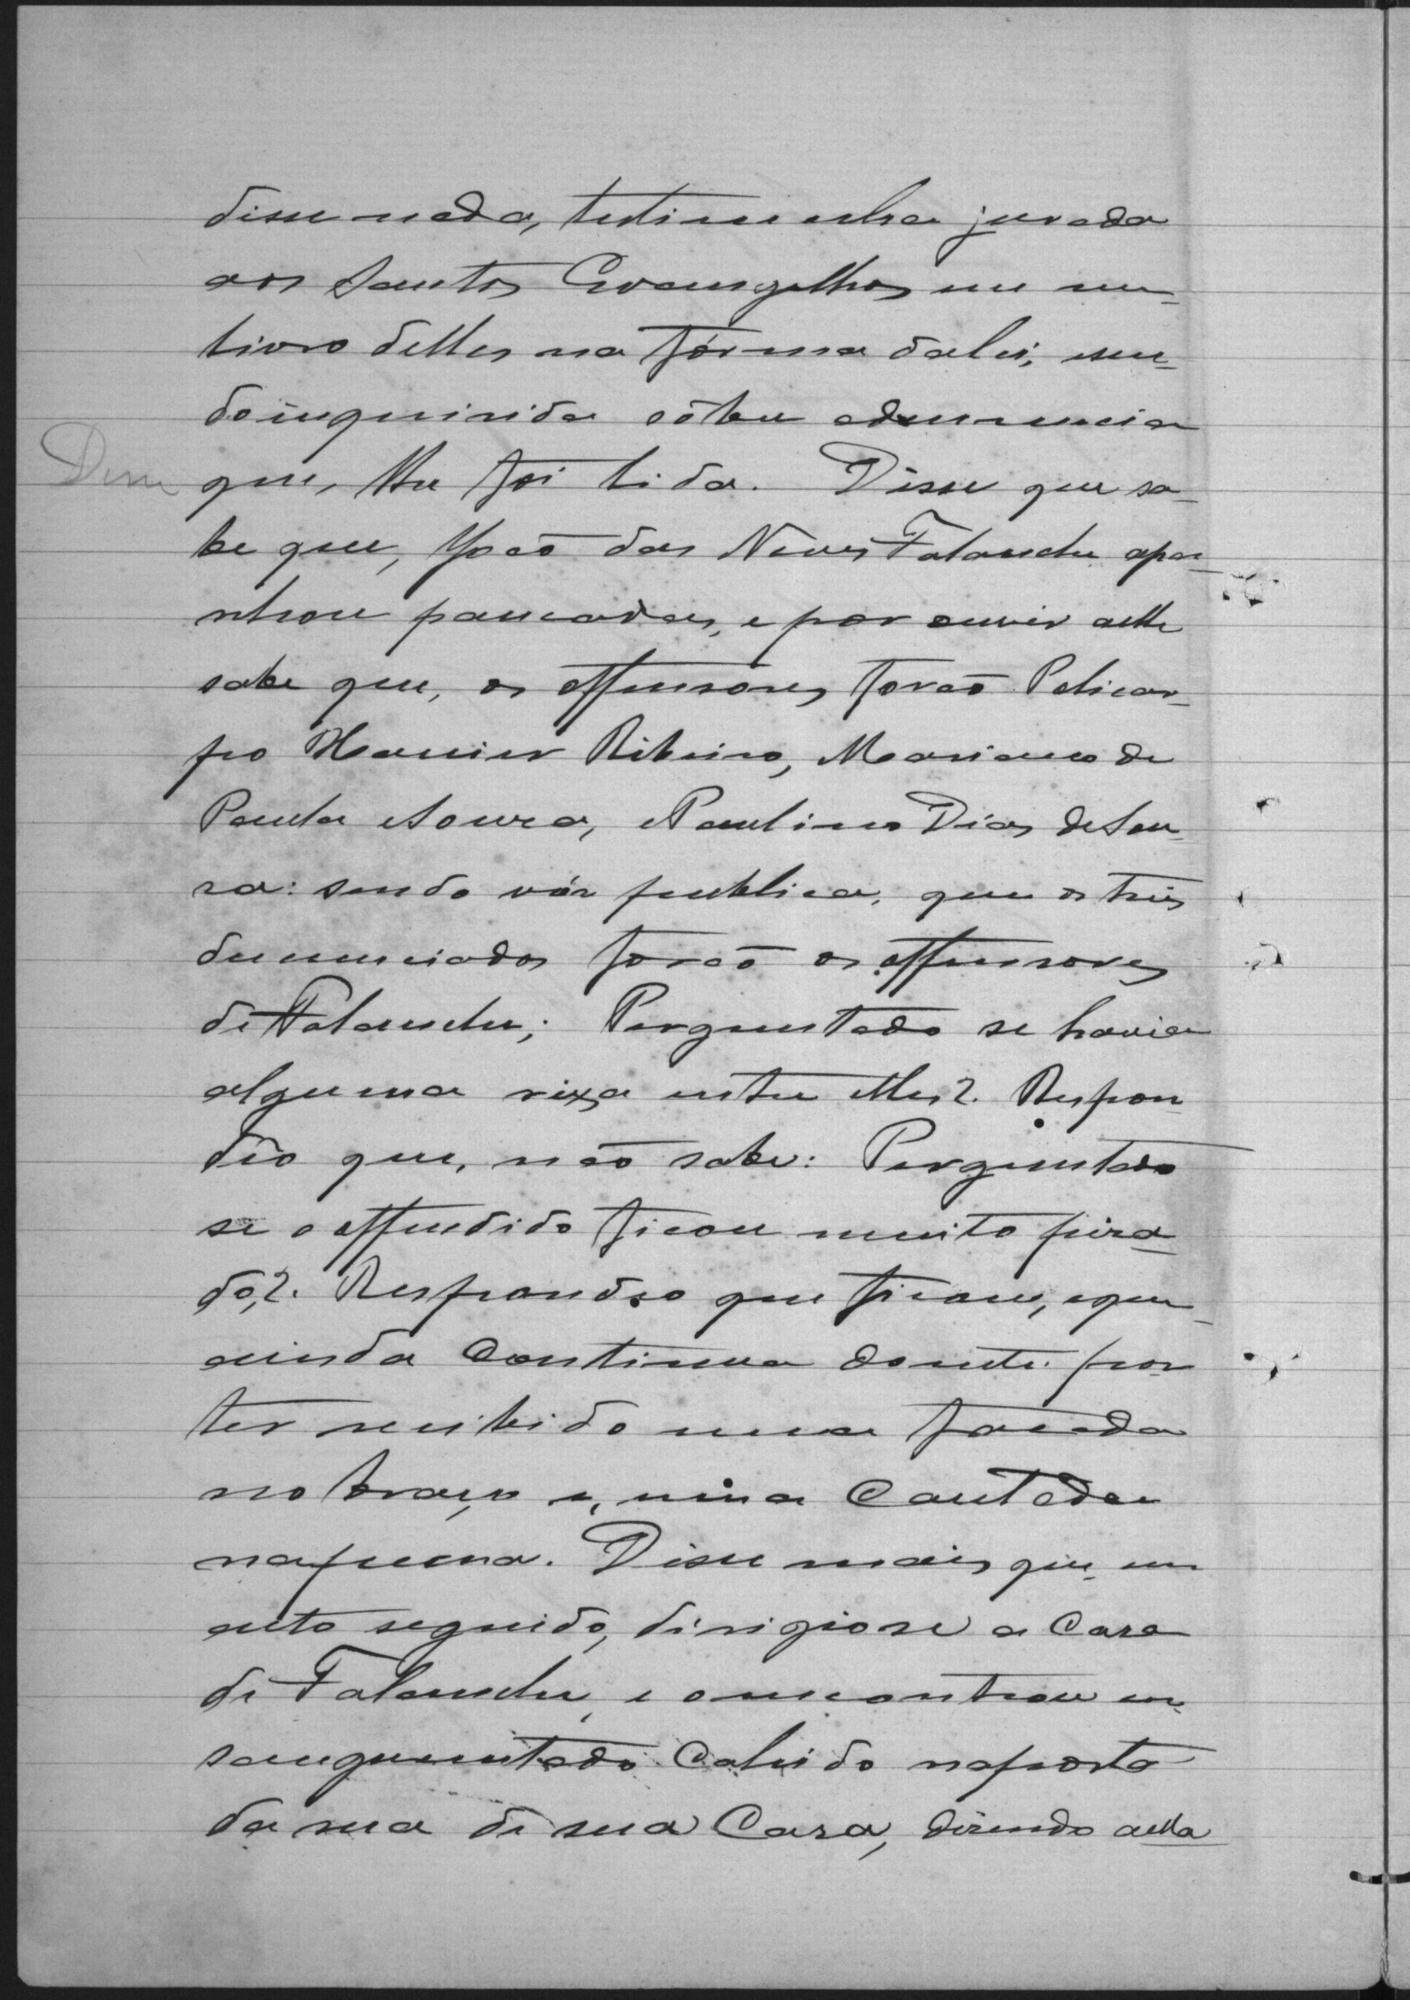 disse nada, testimunha jurada
aos Santos Evangelhos em um
livro delles na fórma dalei, esen-
do inquirida sôbre adenuncia
que, lhe foi lida. Disse que sa-
be que, João das Neves Falanche apa-
nhou pancadas, e por ouvir delle
sabe que, os offensores forão Policar-
po Xavier Ribeiro, Mariano de
Paula Moura, e Paulino Dias de Sou-
za: sendo vóz publica, que os tres
denunciados forão os offensores
de Falanche; Perguntado se havia
alguma rixa entre elles?. Respon
dêo que, não sabe: Perguntado
se o offendido ficou muito fira-
do,?. Respondeo que ficou, e que
ainda continua doente por
ter recibido uma facada
no braço e, uma cautada
na perna. Disse mais que, em
acto seguido, dirigiose a casa
de Falanche, e o encontrou en-
sanguentado cahido na porta
da rua de sua Casa, dizendo a ella